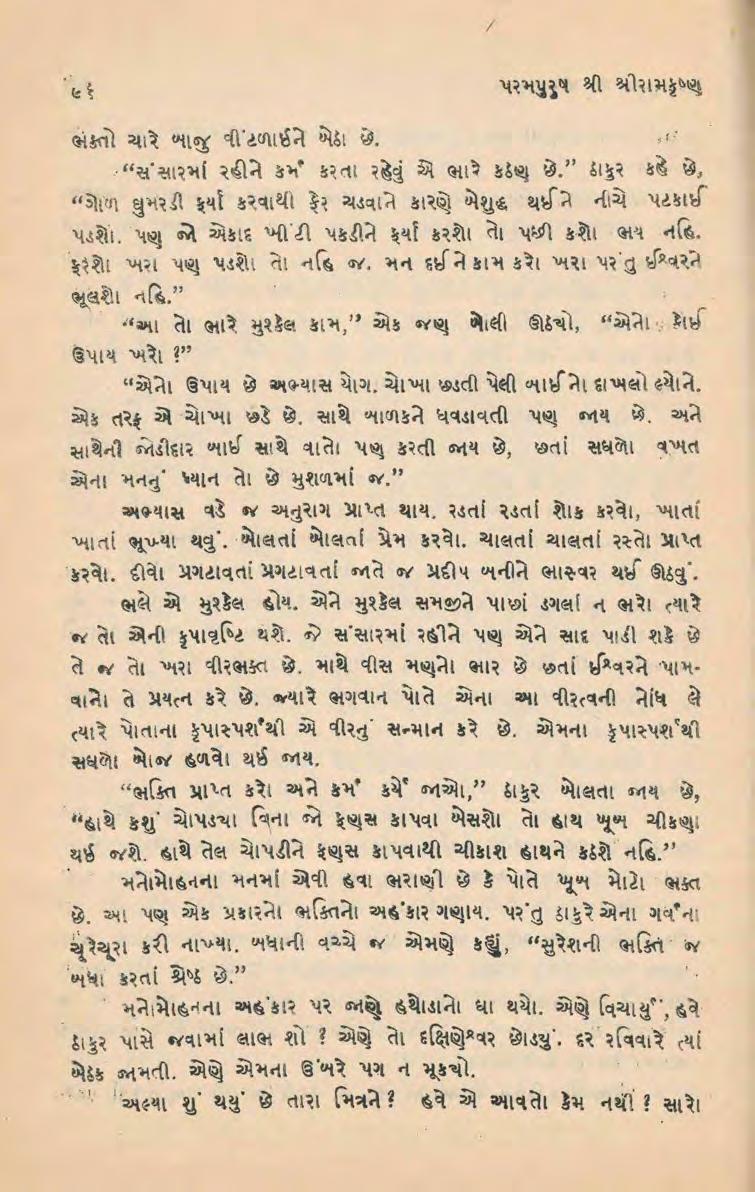 ૯૬ પરમપુરુષ શ્રી શ્રીરામકૃષ્ણ
ભક્તો ચારે બાજુ વીંટળાઈને બેઠા છે.
“સંસારમાં રહીને કર્મ કરતા રહેવું એ ભારે કઠણ છે.” ઠાકુર કહે છે,
“ગોળ ઘુમરડી ફર્યા કરવાથી ફેર ચડવાને કારણે બેશુદ્ધ થઈને નીચે પટકાઈ
પડશો. પણ જો એકાદ ખીંટી પકડીને ફર્યા કરશો તો પછી કશો ભય નહિ.
ફરશો ખરા પણ પડશો તો નહિ જ. મન દઈને કામ કરો ખરા પરંતુ ઈશ્વરને
ભૂલશો નહિ.”
“આ તો ભારે મુશ્કેલ કામ,” એક જણ બોલી ઊઠ્યો, “એનો કોઈ
ઉપાય ખરો ?”
“એનો ઉપાય છે અભ્યાસ યોગ. ચોખા છડતી પેલી બાઈનો દાખલો લ્યોને.
એક તરફ એ ચોખા છડે છે. સાથે બાળકને ધવડાવતી પણ જાય છે. અને
સાથેની જોડીદાર બાઈ સાથે વાતો પણ કરતી જાય છે, છતાં સઘળો વખત
એના મનનું ધ્યાન તો છે મુશળમાં જ.”
અભ્યાસ વડે જ અનુરાગ પ્રાપ્ત થાય. રડતાં રડતાં શોક કરવો, ખાતાં
ખાતાં ભૂખ્યા થવું. બોલતાં બોલતાં પ્રેમ કરવો. ચાલતાં ચાલતાં રસ્તો પ્રાપ્ત
કરવો. દીવો પ્રગટાવતાં પ્રગટાવતાં જાતે જ પ્રદીપ બનીને ભાસ્વર થઈ ઊઠવું.
ભલે એ મુશ્કેલ હોય. એને મુશ્કેલ સમજીને પાછાં ડગલાં ન ભરો ત્યારે
જ તો એની કૃપાવૃષ્ટિ થશે. જે સંસારમાં રહીને પણ એને સાદ પાડી શકે છે
તે જ તો ખરા વીરભક્ત છે. માથે વીસ મણનો ભાર છે છતાં ઈશ્વરને પામ-
વાનો તે પ્રયત્ન કરે છે. જ્યારે ભગવાન પોતે એના આ વીરત્વની નોંધ લે
ત્યારે પોતાના કૃપાસ્પર્શથી એ વીરનું સન્માન કરે છે. એમના કૃપાસ્પર્શથી
સઘળો બોજ હળવો થઈ જાય.
“ભક્તિ પ્રાપ્ત કરો અને કર્મ કર્યે જાઓ,” ઠાકુર બોલતા જાય છે,
“હાથે કશું ચોપડ્યા વિના જો ફણસ કાપવા બેસશો તો હાથ ખૂબ ચીકણા
થઈ જશે. હાથે તેલ ચોપડીને ફણસ કાપવાથી ચીકાશ હાથને કઠશે નહિ.”
મનોમોહનના મનમાં એવી હવા ભરાણી છે કે પોતે ખૂબ મોટો ભક્ત
છે. આ પણ એક પ્રકારનો ભક્તિનો અહંકાર ગણાય. પરંતુ ઠાકુરે એના ગર્વના
ચૂરેચૂરા કરી નાખ્યા. બધાની વચ્ચે જ એમણે કહ્યું, “સુરેશની ભક્તિ જ
બધા કરતાં શ્રેષ્ઠ છે.”
મનોમોહનના અહંકાર પર જાણે હથોડાનો ઘા થયો. એણે વિચાર્યું, હવે
ઠાકુર પાસે જવામાં લાભ શો ? એણે તો દક્ષિણેશ્વર છોડ્યું. દર રવિવારે ત્યાં
બેઠક જામતી. એણે એમના ઉંબરે પગ ન મૂક્યો.
‘અલ્યા શું થયું છે તારા મિત્રને ? હવે એ આવતો કેમ નથી ? સારો